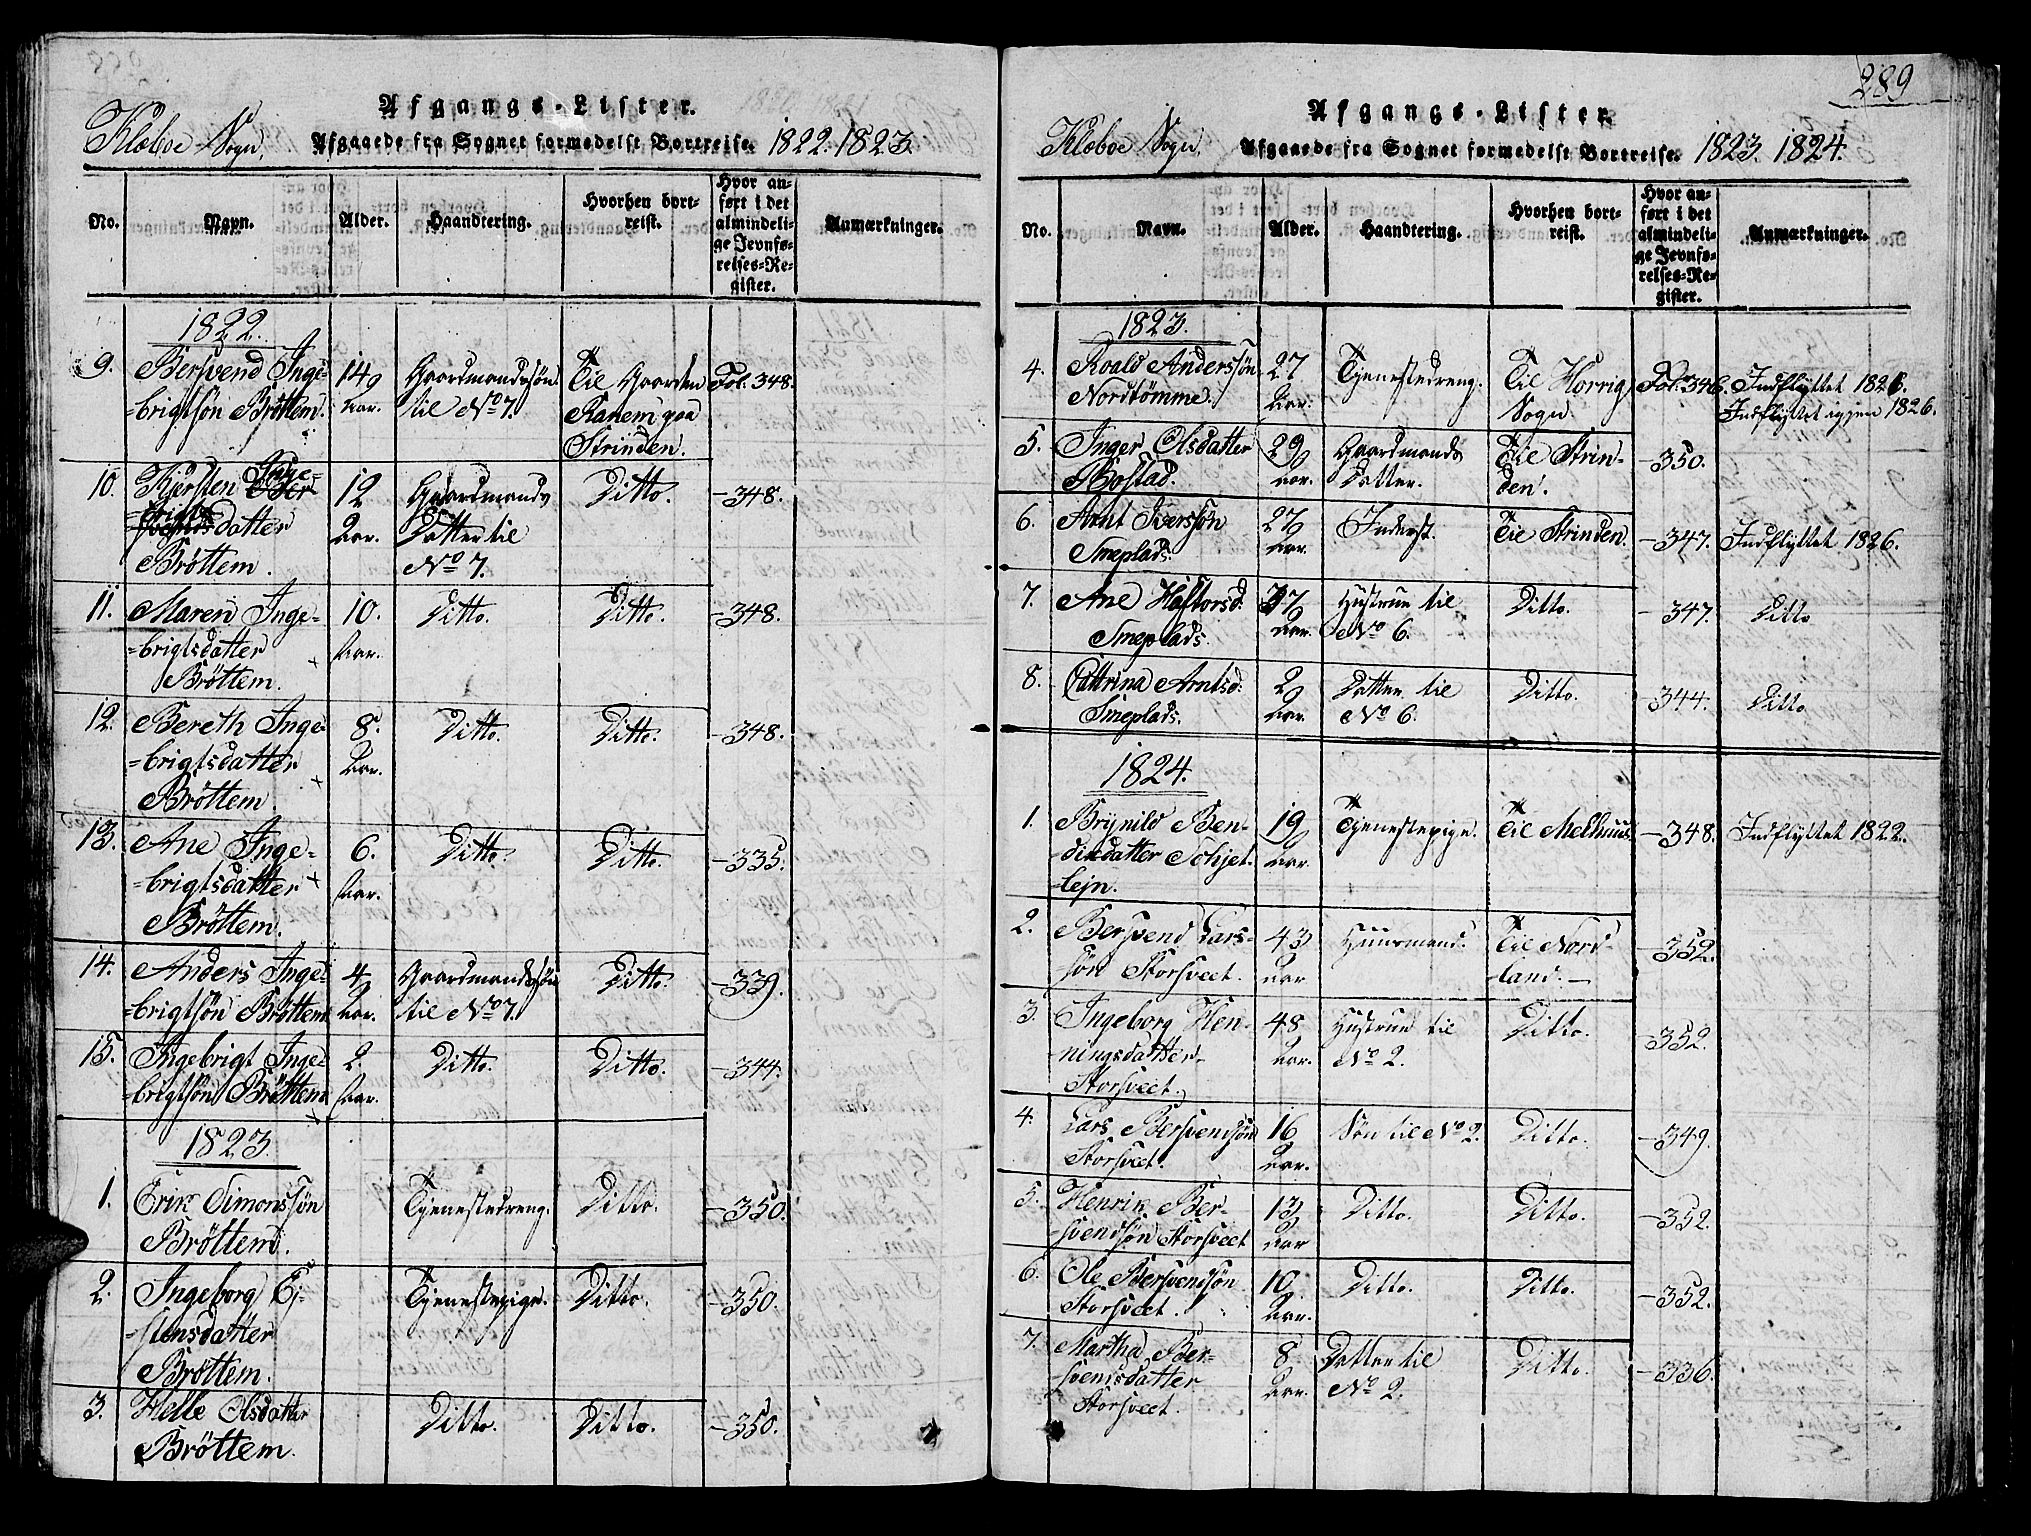 Afgangs-Lister.
Klæboe Sogn. Afgaaede fra Sognet formedelst Bortreise. 1822. 1823.
No. Navn. Alder. Haandtering. Hvorhen bortreist. Hvor anført i det almindelige Jevnførelses-Register. Anmærkninger.
1822.
9. Bersvend Inge- 14 Gaardmandssøn Til Gaarden Fol. 348.
=brigtsøn Brøttem. Aar. til No 7. Ranem paa
Strinden.
10. Kjersten Inge- 12 Gaardmands Ditto. -348.
=brigtsdatter Aar. Datter til
Brøttem. No 7.
11. Maren Inge- 10. Ditto. Ditto. -348.
=brigtsdatter Aar.
Brøttem.
12. Bereth Inge- 8. Ditto. Ditto. -348.
=brigtsdatter Aar.
Brøttem.
13. Ane Inge- 6. Ditto. Ditto. -335.
=brigtsdatter Aar.
Brøttem.
14. Anders Inge- 4 Gaardmandssøn Ditto. -339.
=brigtsøn Brøttem Aar. til No 7.
15. Ingebrigt Inge- 2. Ditto. Ditto. -344.
=brigtsøn Brøttem Aar.
1823.
1. Erik Simonssøn Tjenestedreng. Ditto. -350.
Brøttem.
2. Ingeborg Ej- Tjenestepige. Ditto. -350.
=stensdatter
Brøttem.
3. Helle Olsdatter Ditto. Ditto. -350.
Brøttem.
289
Afgangs-Lister.
Klæboe Sogn. Afgaaede fra Sognet formedelst Bortreise. 1823. 1824.
No. Navn. Alder. Haandtering. Hvorhen bortreist. Hvor anført i det almindelige Jevnførelses-Register. Anmærkninger.
1823.
4. Roald Anderssøn 27 Tjenestedreng. Til Horrig Fol. 346. Indflyttet 1826.
Nordtømme. Aar. Sogn. Indflyttet igjen 1826.
5. Inger Olsdatter 29 Gaardmands Til Strin- -350.
Bostad. Aar. Datter. den.
6. Arnt Iverssøn 27 Inderst. Til Strinden. -347. Indflyttet 1826.
Smeplads. Aar.
7. Ane Haftorsd. 37 Hustrue til Ditto. -347. Ditto
Smeplads. Aar. No 6.
8. Cattrina Arntsd. 2 Datter til Ditto. -344. Ditto
Smeplads. Aar. No 6.
1824.
1. Brynild Ben- 19 Tjenestepige. Til Melhuus. -348. Indflyttet 1822.
-dixdatter Solhjel- Aar.
-lejn.
2. Bersvend Lars- 43 Huusmand. Til Nord- -352.
søn Storsveet. Aar land.
3. Ingeborg Hen- 48 Hustrue til Ditto. -352.
-ningsdatter Aar. No 2.
Storsveet.
4. Lars Bersvendsøn 16 Søn til No 2. Ditto. -349.
Storsveet. Aar.
5. Henrik Ber- 13 Ditto. Ditto. -352.
svendsøn Storsveet Aar
6. Ole Bersvendsøn 10. Ditto. Ditto. -352.
Storsveet. Aar.
7. Martha Ber- 8 Datter til Ditto. -336.
svensdatter Aar. No 2.
Storsveet.